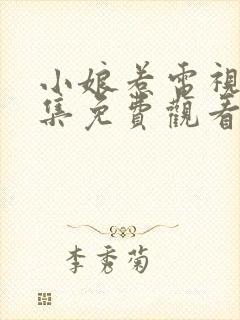 小娘惹電視
集免費觀看
李秀菊